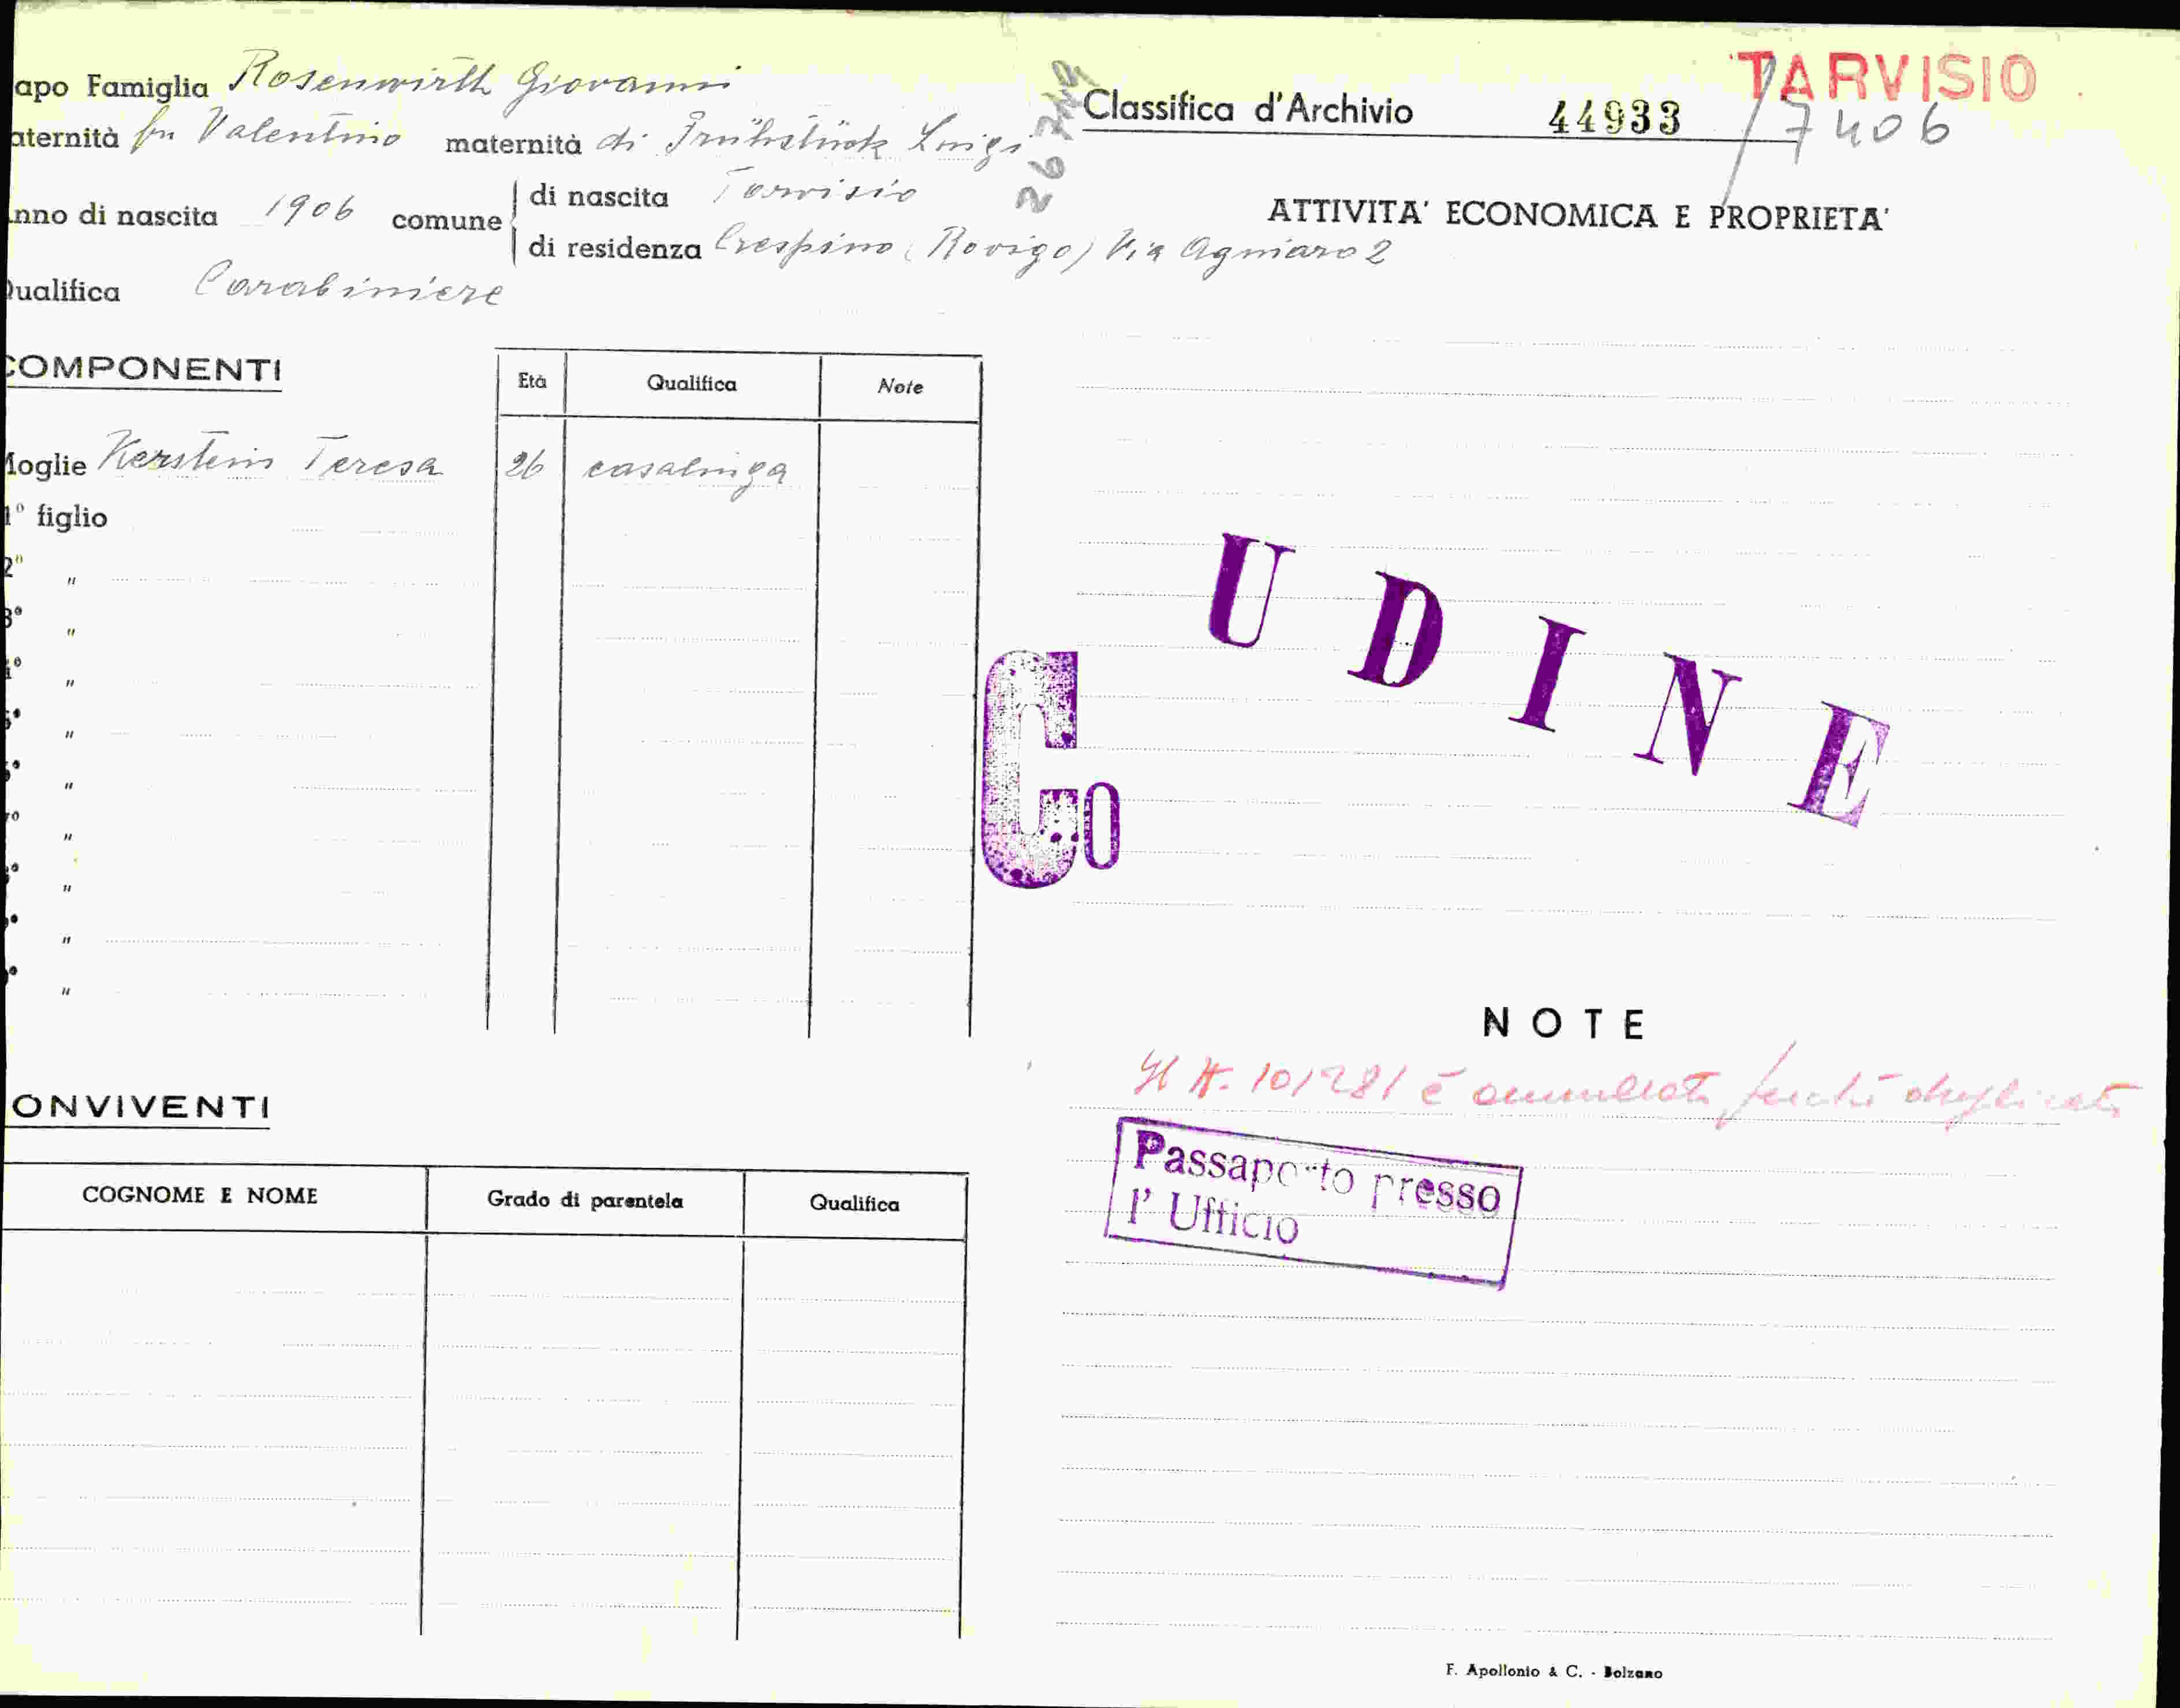 apo Famiglia Rosenwirth Giovanni
aternità fu Valentino maternità di Frühstück Luigi
nno di nascita 1906 comune
di nascita Tarvisio
di residenza Crespino (Rovigo) Via Agniaro 2
ualifica Carabiniere
26
TARVISIO
Classifica d'Archivio 44933 / 7406
ATTIVITA' ECONOMICA E PROPRIETA'
COMPONENTI
Età Qualifica Note
oglie Kerstein Teresa 26 casalinga
1° figlio
2° "
3° "
° "
5° "
° "
° "
° "
° "
° "
UDINE
Co
NOTE
Il N. 101281 è annullato perché duplicato
Passaporto presso
l' Ufficio
ONVIVENTI
COGNOME E NOME Grado di parentela Qualifica
F. Apollonio & C. - Bolzano